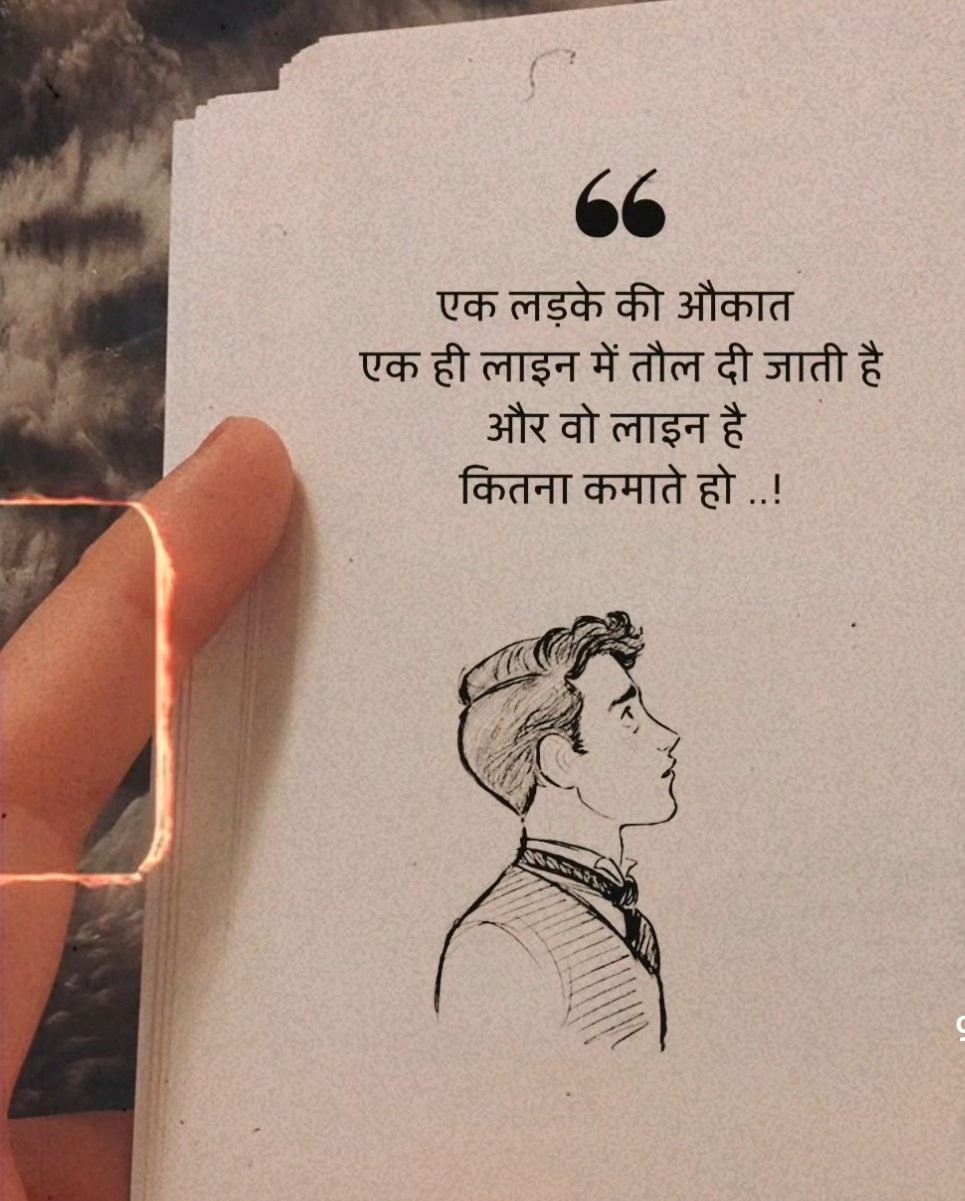 ❝
एक लड़के की औकात
एक ही लाइन में तौल दी जाती है
और वो लाइन है
कितना कमाते हो ..!